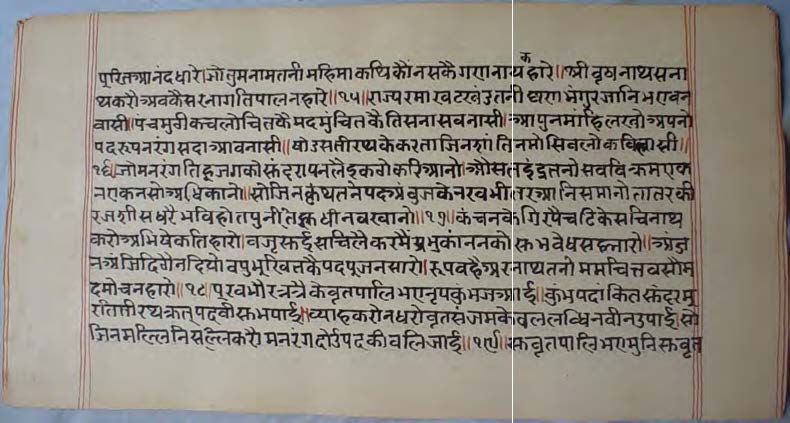 क
पूरितआनंदधारे।जोतुमनामतनीमहिमाकथिकौंनसकैगणनायहारे॥श्रीवृषनाथसना
थकरौअवकैसरनागतिपालनहारे॥१५॥राज्यरमाखटखंडतनीछणभंगुरजानिभएवन
वासी।पंचमुठीकचलोचितकैमदमुंचितकैतिसनासवनासी।आपुनमांहिलखोअपनो
पदरूपनरंगसदाअवनासी॥योउसतीरथकेकरताजिनशांतिनमोसिवलोकविलासी॥
१६॥जोमनरंगतिहूजगकोसुंदरापनलैइकठोकरिआनो।औसतइंद्रतनोसवविक्रमएक
नएकनसोअधिकानो॥सोजिनकुंथतनेपदअंबुजकेनखभीतरआनिसमानोतातरकी
रजशीसधरैभविहोतपुनीतसुधीनवखानो॥१७॥कंचनकेगिरपैचटिकेसचिनाथ
करोअभिषेकतिहारो।वजृसूईसचिलैकरमैंप्रभुकांननकोसुभवेधसह्मारो॥अंजु
नअंजिदिगैनदियोवपुभूखितकैपदपूजनसारो।रूपवहैअरनाथतनीममचित्तवसौम
दमोचनहारो॥१८॥पूरवभौरत्नत्रैकेवृतपालिभएनृपकुंभजआई।कुंभपदांकितसुंदरमू
रतितीरथकृतपदवीसुभपाई।व्याहकरोनधरोवृतसंजमकेवललव्धिनवीनउपाई।सो
जिनमल्लिनिसल्लिकरौमनरंगदोऊपदकीवलिजाई॥१९॥सुवृतपालिभएमुनिसुवृत